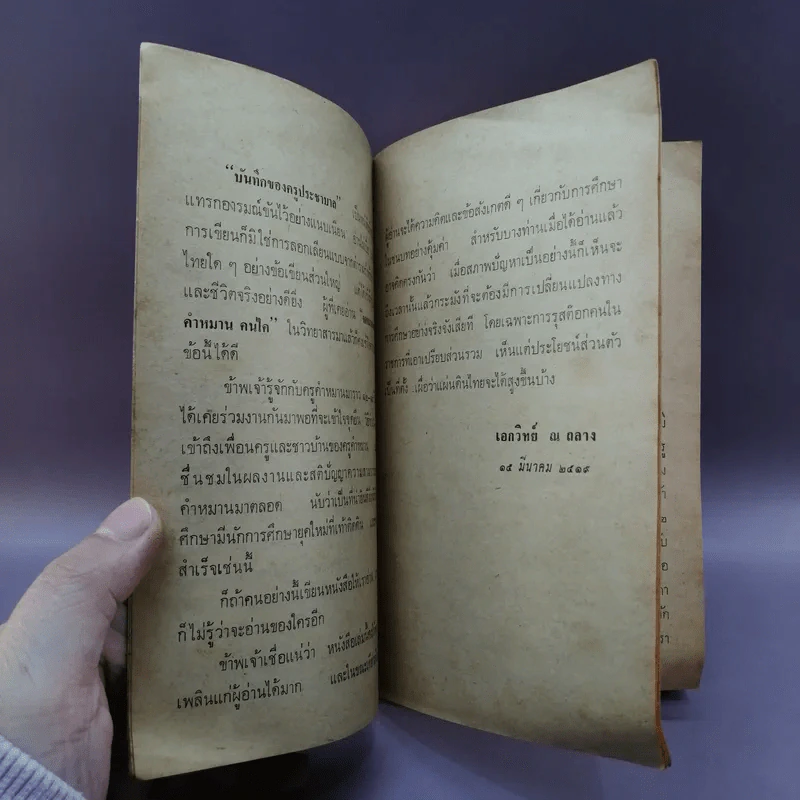 “บันทึกของครูประชาบาล”
แทรกอารมณ์ขันไว้อย่างแนบเนียน
การเขียนก็มิใช่การลอกเลียนแบบจาก
ไทยใด ๆ อย่างข้อเขียนส่วนใหญ่
และชีวิตจริงอย่างดียิ่ง ผู้ที่เคยอ่าน
คำหมาน คนไค” ในวิทยาสารมาแล้ว
ข้อนี้ได้ดี
ข้าพเจ้ารู้จักกับครูคำหมานมาราว
ได้เคยร่วมงานกันมาพอที่จะเข้าใจ
เข้าถึงเพื่อนครูและชาวบ้านของครูคำหมาน
ชื่นชมในผลงานและสติปัญญาความสามารถ
คำหมานมาตลอด นับว่าเป็นที่น่ายินดี
ศึกษามีนักการศึกษายุคใหม่ที่เท้าติดดิน
สำเร็จเช่นนี้
ก็ถ้าคนอย่างนี้เขียนหนังสือให้เราอ่าน
ก็ไม่รู้ว่าจะอ่านของใครอีก
ข้าพเจ้าเชื่อแน่ว่า หนังสือเล่มนี้
เพลินแก่ผู้อ่านได้มาก และในขณะ
ผู้อ่านจะได้ความคิดและข้อสังเกตดี ๆ เกี่ยวกับการศึกษา
ในชนบทอย่างคุ้มค่า สำหรับบางท่านเมื่อได้อ่านแล้ว
อาจคิดตรงกันว่า เมื่อสภาพปัญหาเป็นอย่างนี้ก็เห็นจะ
ถึงเวลานั้นแล้วกระมังที่จะต้องมีการเปลี่ยนแปลงทาง
การศึกษาอย่างจริงจังเสียที โดยเฉพาะการรุสต๊อกคนใน
ราชการที่เอาเปรียบส่วนรวม เห็นแต่ประโยชน์ส่วนตัว
เป็นที่ตั้ง เผื่อว่าแผ่นดินไทยจะได้สูงขึ้นบ้าง
เอกวิทย์ ณ ถลาง
๑๕ มีนาคม ๒๕๑๙